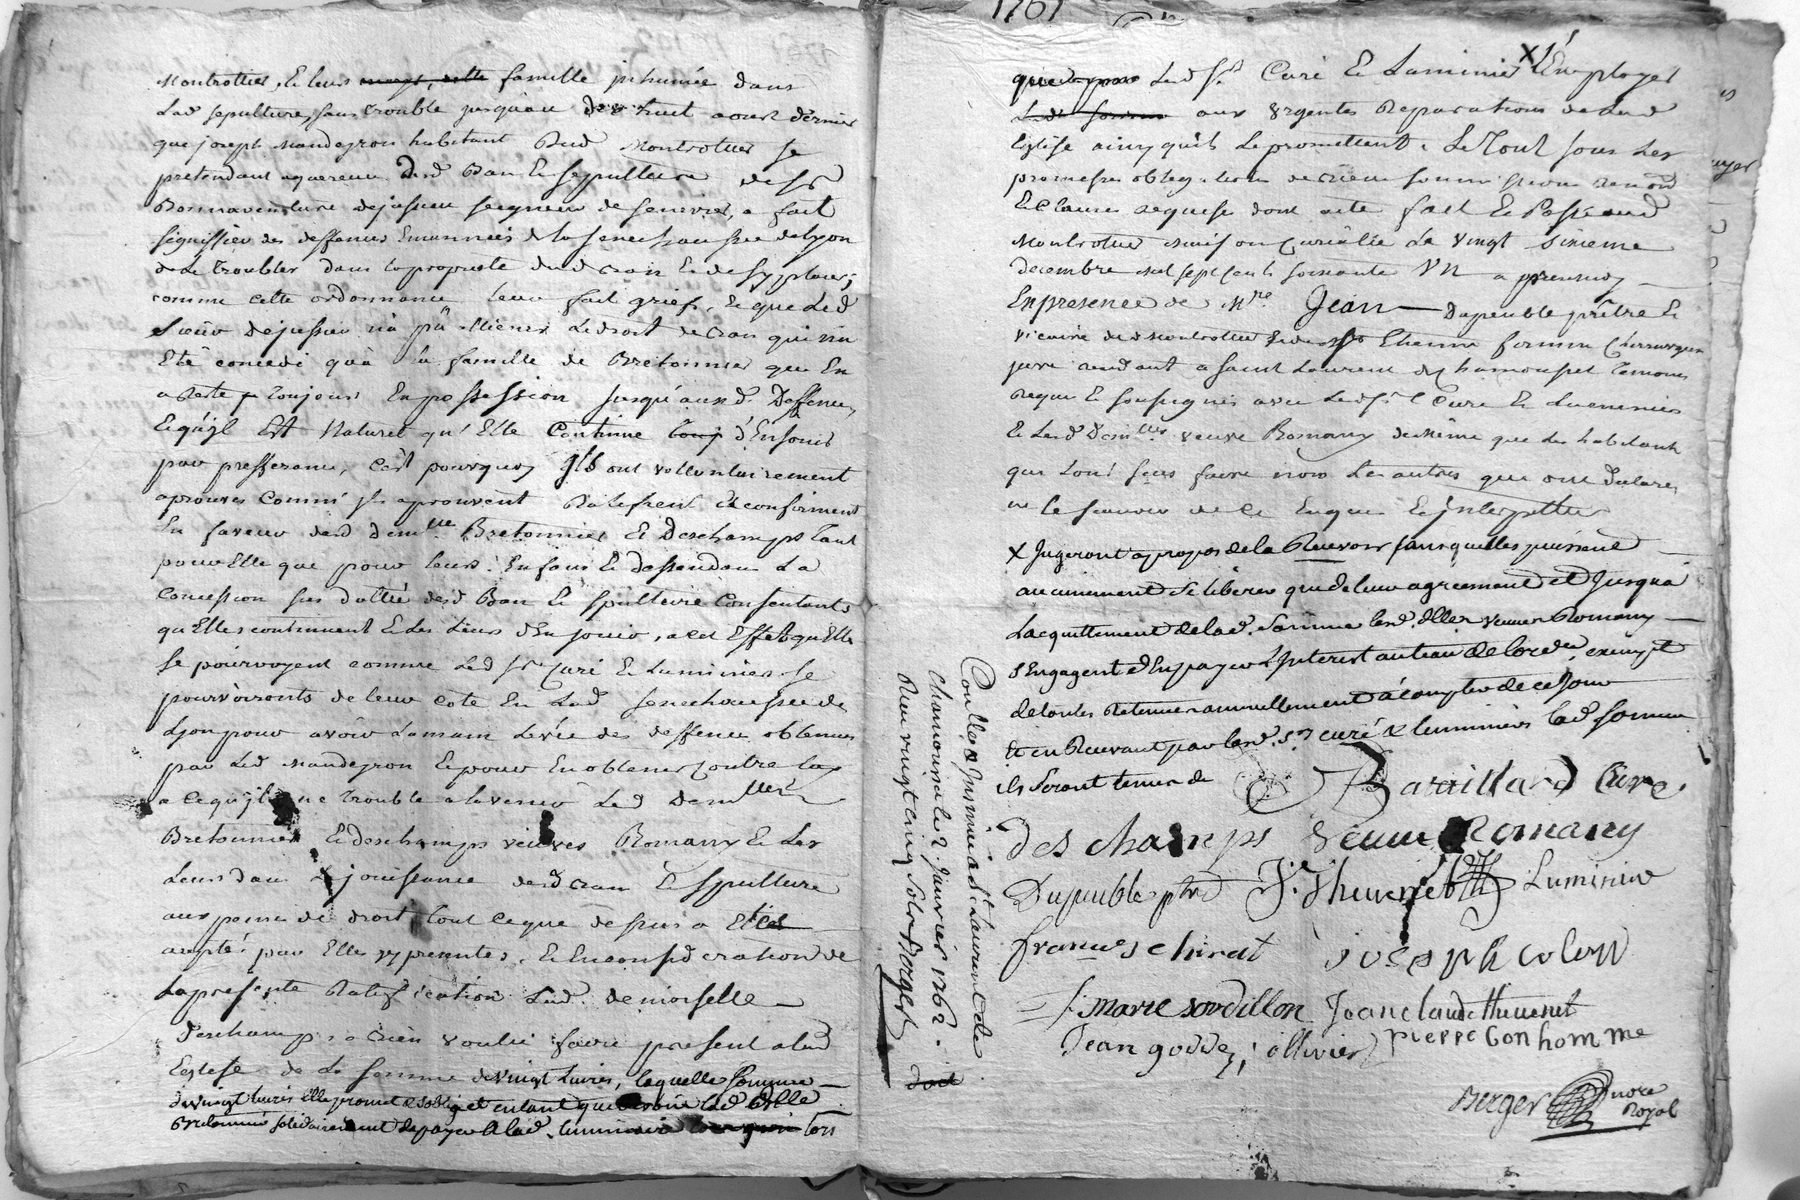 Montrottier, & leurs famille inhumée dans
Lad sepulture, sans trouble jusquau dix huit aoust dernier
que joseph Mandeyron habitant Aud Montrottier se
pretendant aquereur Dud Ban & sepulture de Sr
Bonnaventure dejussieu seigneur de senevier, a fait
signiffier des deffences Emannées de la senechaussée de Lyon
de Le troubler dans la proprieté dud & de sy placer;
comme cette ordonnance leur fait grief, & que Led
sieur Dejussieu n'a pû alliener Le droit de qui n'a
Eté concedé qu'a la famille de Bretonnier qui En
a resté toujours En possession jusqu'auxd. Deffences
Equ'il Est Naturel qu'Elle Continue d'En jouir
par prefferance, c'est pourquoy Ils ont vollontairement
aprouvés Comme Ils aprouvent Ratifient & confirment
En faveur desd demlle Bretonnier & Deschamps tant
pour Elle que pour leurs Enfans & dessendans La
Concession sus dattée desd Ban & sepulture Consentants
qu'Elles continuent & Les Leurs d'En jouir, a cet Effet qu'Elle
se pourvoyent comme Led Sr Curé & Luminier se
pourvoironts de leur coté En Lad senechaussée de
Lyon pour avoir Lamain Levée des deffences obtenues
par Led Mandeyron & pour En obtenir Contre luy
a Cequ'il ne trouble a lavenir Led Demlles
Bretonnier & deschamps veuves Romany & Les
Leurs dans jouissance desd & sepulture
aux peine de droit tout ceque dessus a Eté
accepté par Elles yy presentes, & En consideration de
La presente Ratification Lad. demoiselle
Deschamps a bien voulu faire present a lad
Eglise de La somme de vingt Livres, laquelle somme
de vingt livres elle promet & oblige et entant que Lad Dlle
Bretonnier solidairement de payer a lad. luminaire lors
1761
Led Sr Curé & Luminier X Employer
aux Urgentes Reparations de Lad
Eglise ainsy qu'ils Le promettent. Le Tout sous Les
promesses obligations
& Clauses requises dont acte fait & Passé aud
Montrottier Maison Curialle Le vingt sixieme
decembre mil sept cent soixante Un apres midy
En presence de Mre Jean Dupeuble prêtre &
vicaire dud Montrottier & de Sr Etienne fermin Chirurgien
juré rendant a Saint Laurent de Chamousset temoins
Requis & soussignés avec Led Sr Curé & Luminier
& Lesd Demlles veuve Romany de même que Les habitants
qui L'ont sceu faire non Les autres que ont declarer
ne le sçavoir de ce Enquis & interpellés
X Jugeront apropos de la Recevoir sans quelles puissent
aucunement se libérer que de leur agreement et Jusqua
Lacquittement delad. Somme Lesd. dlles veuves Romany
s'Engagent d'En payer L'interest au taux de lordce, exempt
de toutes Retenues annuellement à compter de ce Jour
Et en Recevant par lesd. Sr curé & luminier lad somme
ils seront tenus de
Barvillard Curé
Deschamps Veuve Romany
Dupeuble ptre J. Thevenet Luminier
frances chirat joseph colon
f. Marie sovdillon Jean claude thevenet
Jean godde; ollivier pierre bon homme
Berger notre Royal
Conllé & Insinué a St Laurent de
Chamousset le 2. Janvier 1762.
Reçu vingt cinq Sols Berger